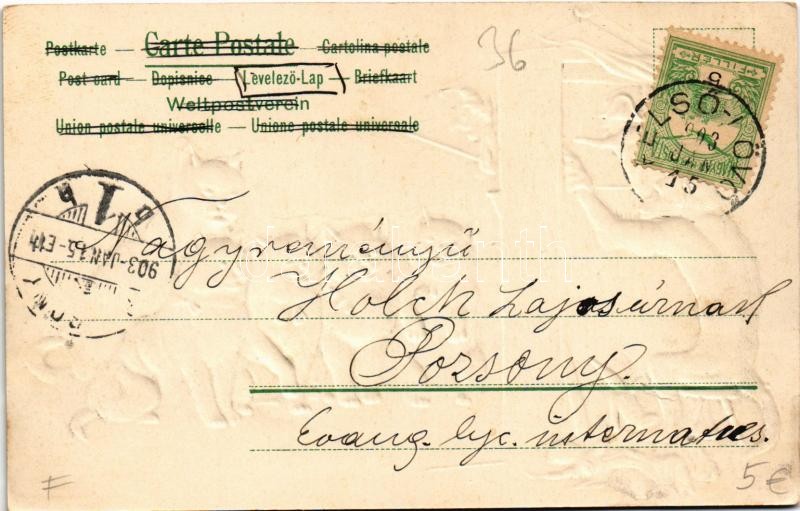 36
Postkarte — Carte Postale — Cartolina postale
Post card — Dopisnice — Levelező-Lap — Briefkaart
Weltpostverein
Union postale universelle — Unione postale universale
FILLÉR
5
FELSŐ-
903 JAN 15
Nagyreményű
Holck Lajos úrnak
Pozsony.
Evang. lyc. internatus.
F
5€